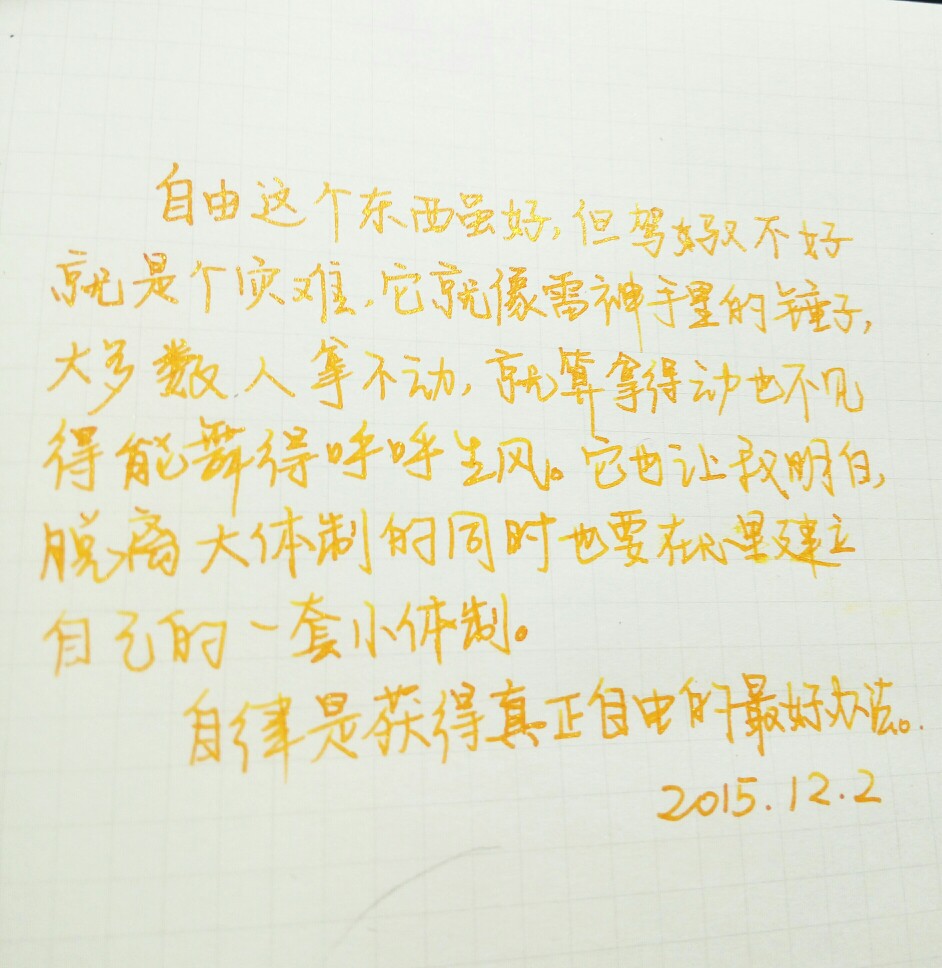 自由这个东西虽好,但驾驭不好
就是个灾难,它就像雷神手里的锤子,
大多数人拿不动,就算拿得动也不见
得能舞得呼呼生风。它也让我明白,
脱离大体制的同时也要在心里建立
自己的一套小体制。
自律是获得真正自由的最好办法。
2015.12.2